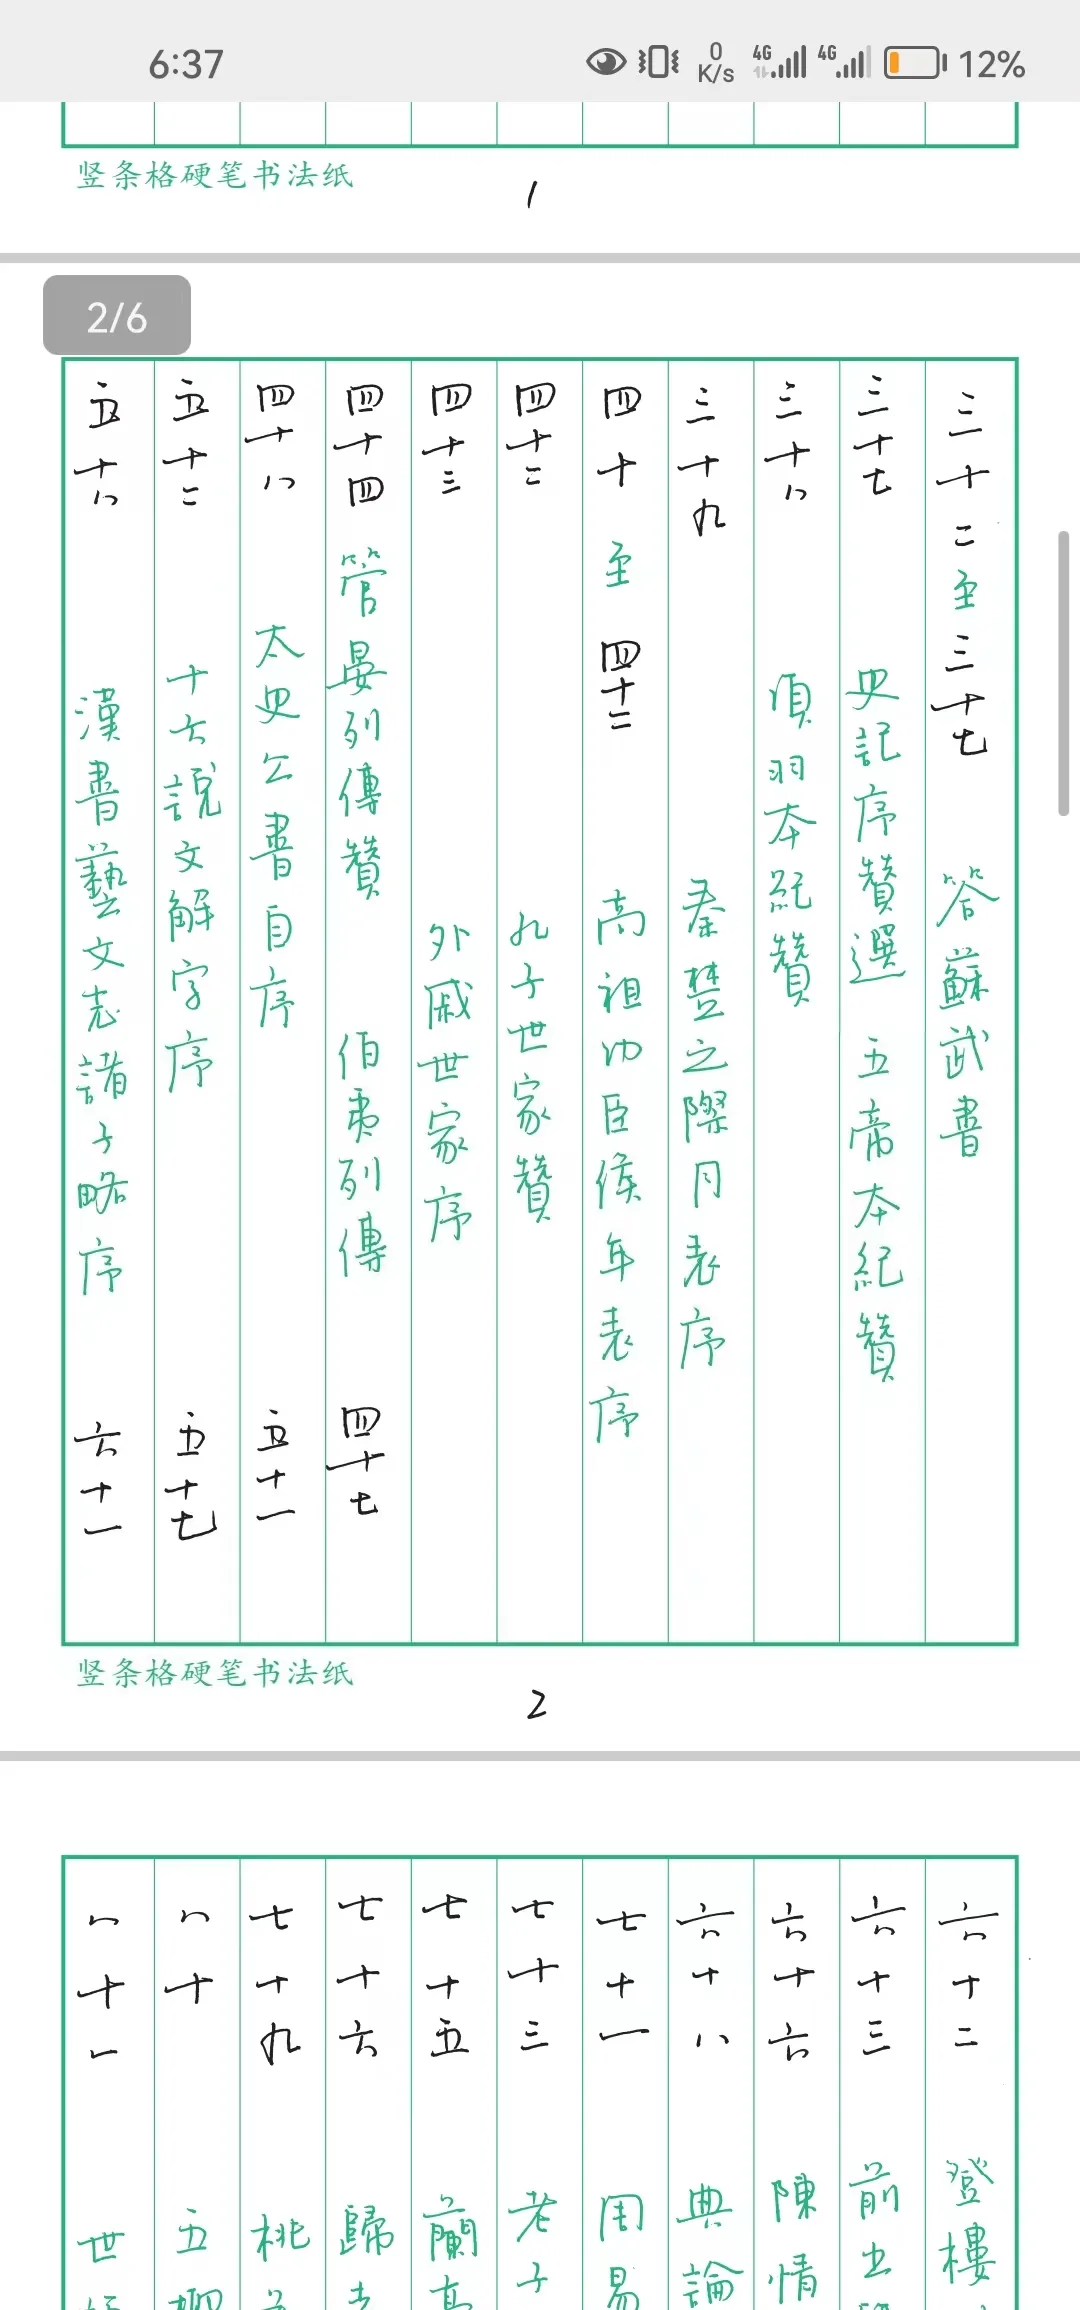 6:37
0 K/s 4G 4G 12%
竖条格硬笔书法纸
1
2/6
三十二至三十七 答蘇武書
三十七 史記序贊選 五帝本紀贊
三十八 項羽本紀贊
三十九 秦楚之際月表序
四十至四十二 高祖功臣侯年表序
四十二 孔子世家贊
四十三 外戚世家序
四十四 管晏列傳贊 伯夷列傳 四十七
四十八 太史公書自序 五十一
五十二 十六說文解字序 五十七
五十八 漢書藝文志諸子略序 六十一
竖条格硬笔书法纸
2
六十二 登樓
六十三 前出
六十六 陳情
六十八 典論
七十一 周易
七十三 老子
七十五 蘭亭
七十六 歸去
七十九 桃
八十 五柳
八十一 世